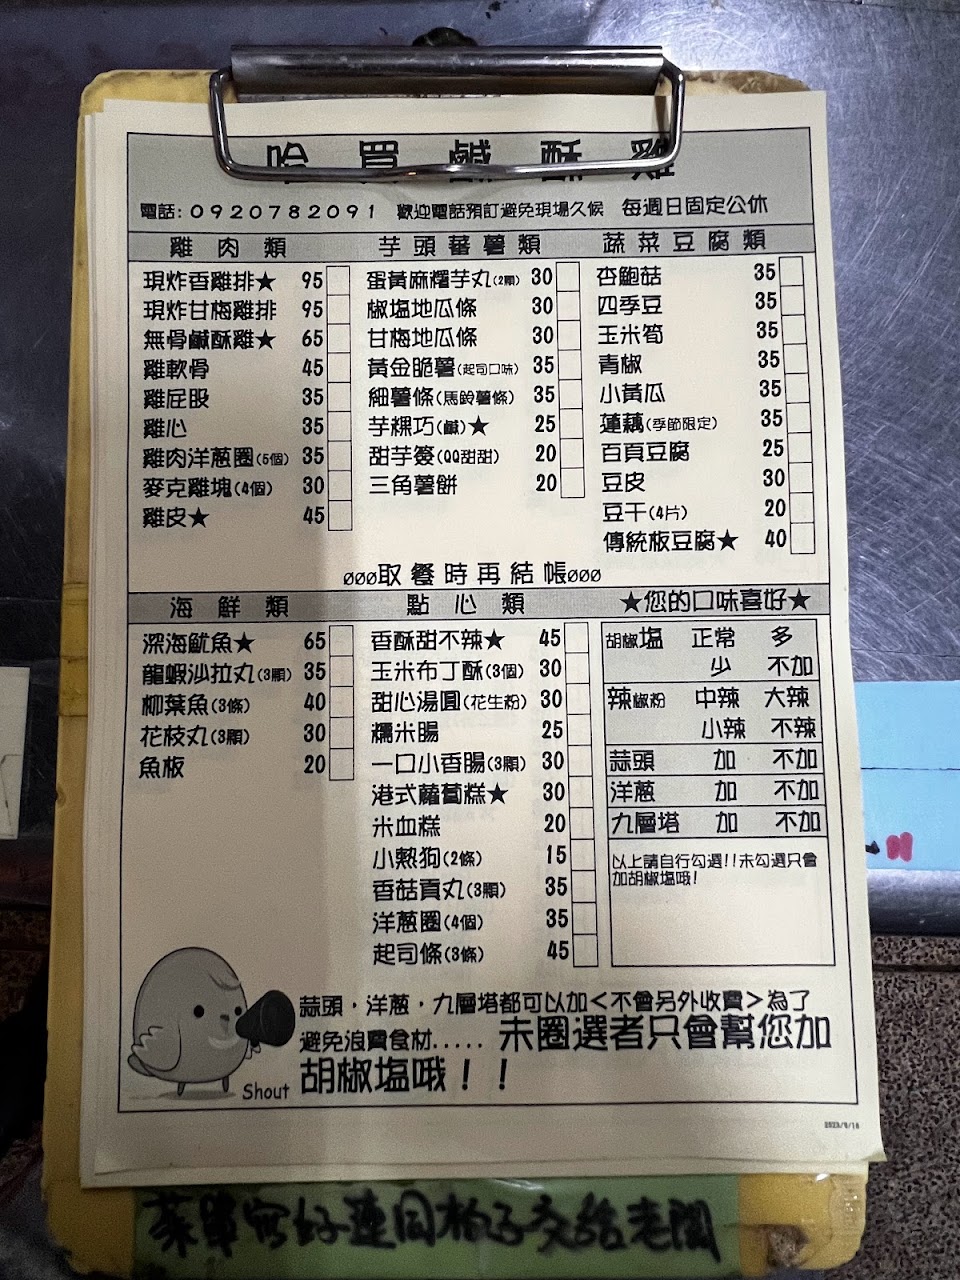 哈買鹹酥雞
電話:0920782091 歡迎電話預訂避免現場久候 每週日固定公休
雞肉類
現炸香雞排★ 95
現炸甘梅雞排 95
無骨鹹酥雞★ 65
雞軟骨 45
雞屁股 35
雞心 35
雞肉洋蔥圈(5個) 35
麥克雞塊(4個) 30
雞皮★ 45
芋頭蕃薯類
蛋黃麻糬芋丸(2顆) 30
椒塩地瓜條 30
甘梅地瓜條 30
黃金脆薯(起司口味) 35
細薯條(馬鈴薯條) 35
芋粿巧(鹹)★ 25
甜芋簽(QQ甜甜) 20
三角薯餅 20
蔬菜豆腐類
杏鮑菇 35
四季豆 35
玉米筍 35
青椒 35
小黃瓜 35
蓮藕(季節限定) 35
百頁豆腐 25
豆皮 30
豆干(4片) 20
傳統板豆腐★ 40
øøø取餐時再結帳øøø
海鮮類
深海魷魚★ 65
龍蝦沙拉丸(3顆) 35
柳葉魚(3條) 40
花枝丸(3顆) 30
魚板 20
點心類
香酥甜不辣★ 45
玉米布丁酥(3個) 30
甜心湯圓(花生粉) 30
糯米腸 25
一口小香腸(3顆) 30
港式蘿蔔糕★ 30
米血糕 20
小熱狗(2條) 15
香菇貢丸(3顆) 35
洋蔥圈(4個) 35
起司條(3條) 45
★您的口味喜好★
胡椒塩 正常 多
少 不加
辣椒粉 中辣 大辣
小辣 不辣
蒜頭 加 不加
洋蔥 加 不加
九層塔 加 不加
以上請自行勾選!!未勾選只會
加胡椒塩哦!
蒜頭,洋蔥,九層塔都可以加<不會另外收費>為了
避免浪費食材..... 未圈選者只會幫您加
胡椒塩哦!!
Shout
2023/9/16
菜單寫好連同柏子交給老闆